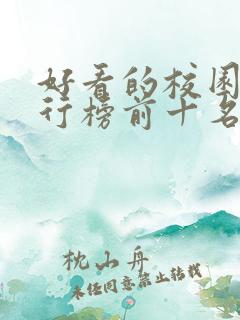 好看的校园
行榜前十名
枕山舟
未经同意禁止转载